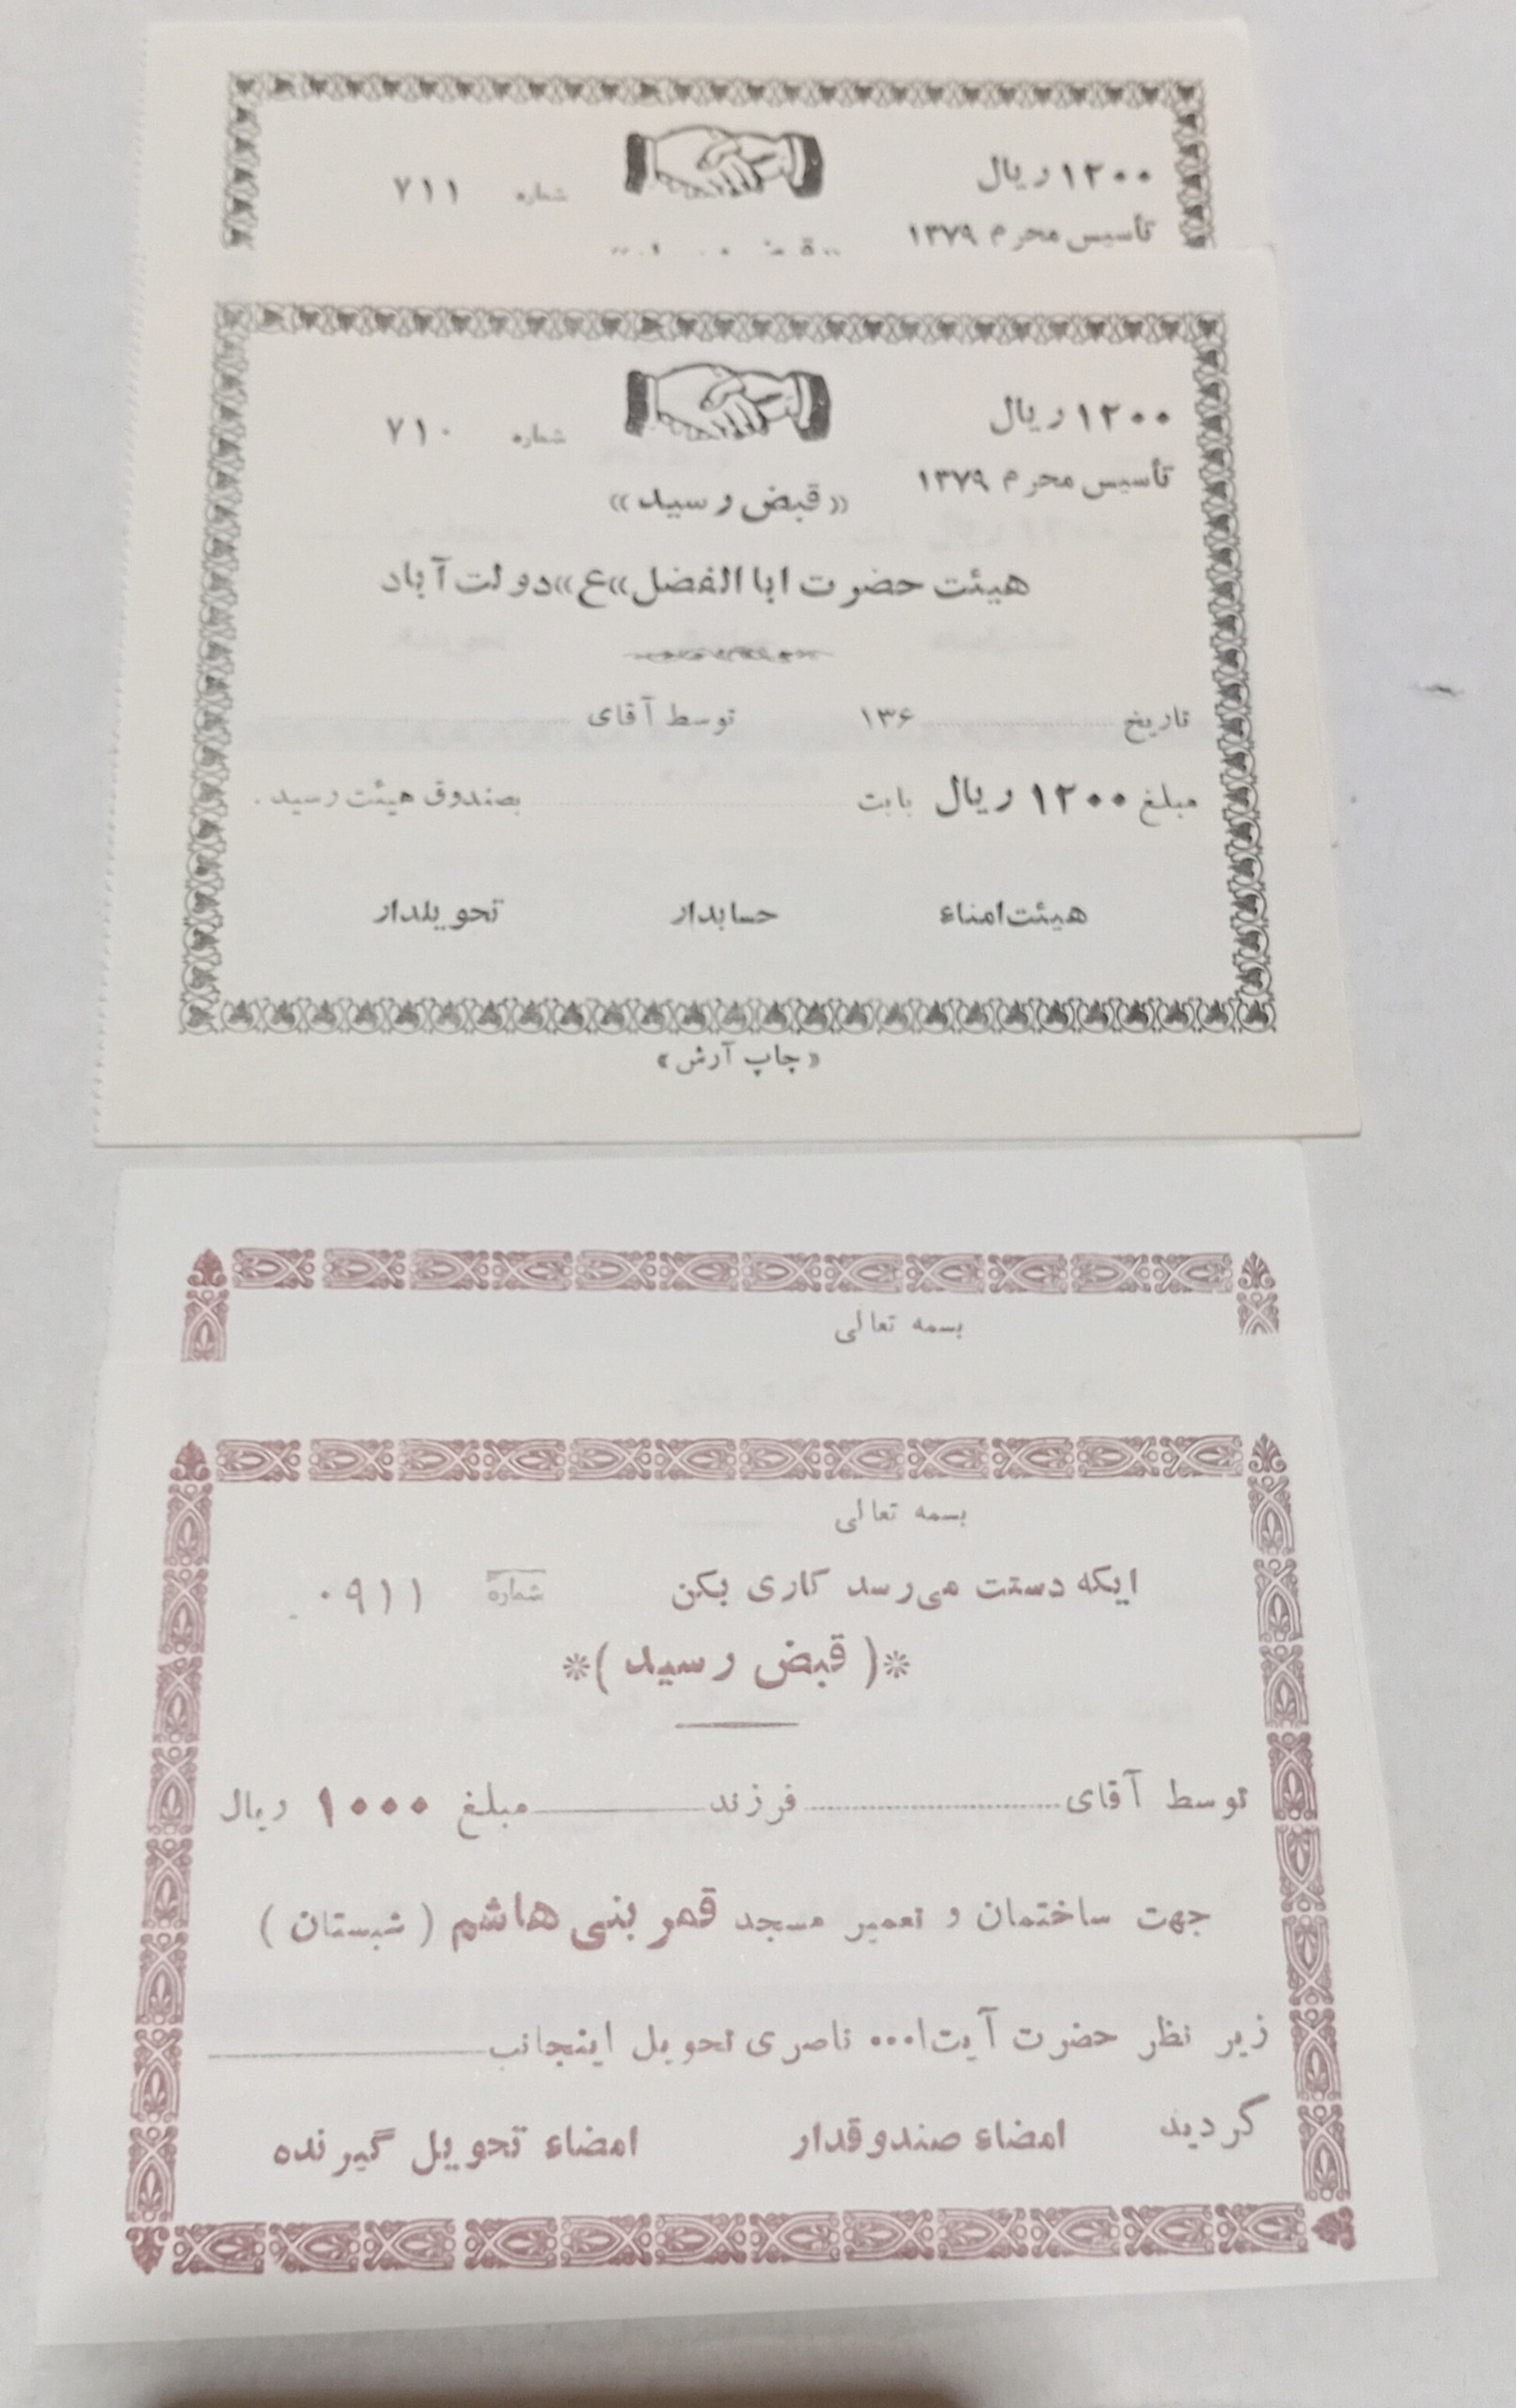 ۱۲۰۰ ریال شماره ۷۱۱
تأسیس محرم ۱۳۷۹
۱۲۰۰ ریال شماره ۷۱۰
تأسیس محرم ۱۳۷۹
«قبض رسید»
هیئت حضرت ابا الفضل»ع»دولت آباد
تاریخ ۱۳۶ توسط آقای
مبلغ ۱۲۰۰ ریال بابت بصندوق هیئت رسید.
هیئت امناء حسابدار تحویلدار
«چاپ آرش»
بسمه تعالی
بسمه تعالی
ایکه دستت می رسد کاری بکن شماره ۰۹۱۱
*( قبض رسید )*
توسط آقای فرزند مبلغ ۱۰۰۰ ریال
جهت ساختمان و تعمیر مسجد قمر بنی هاشم ( شبستان )
زیر نظر حضرت آیت ا... ناصری تحویل اینجانب
گردید امضاء صندوقدار امضاء تحویل گیرنده